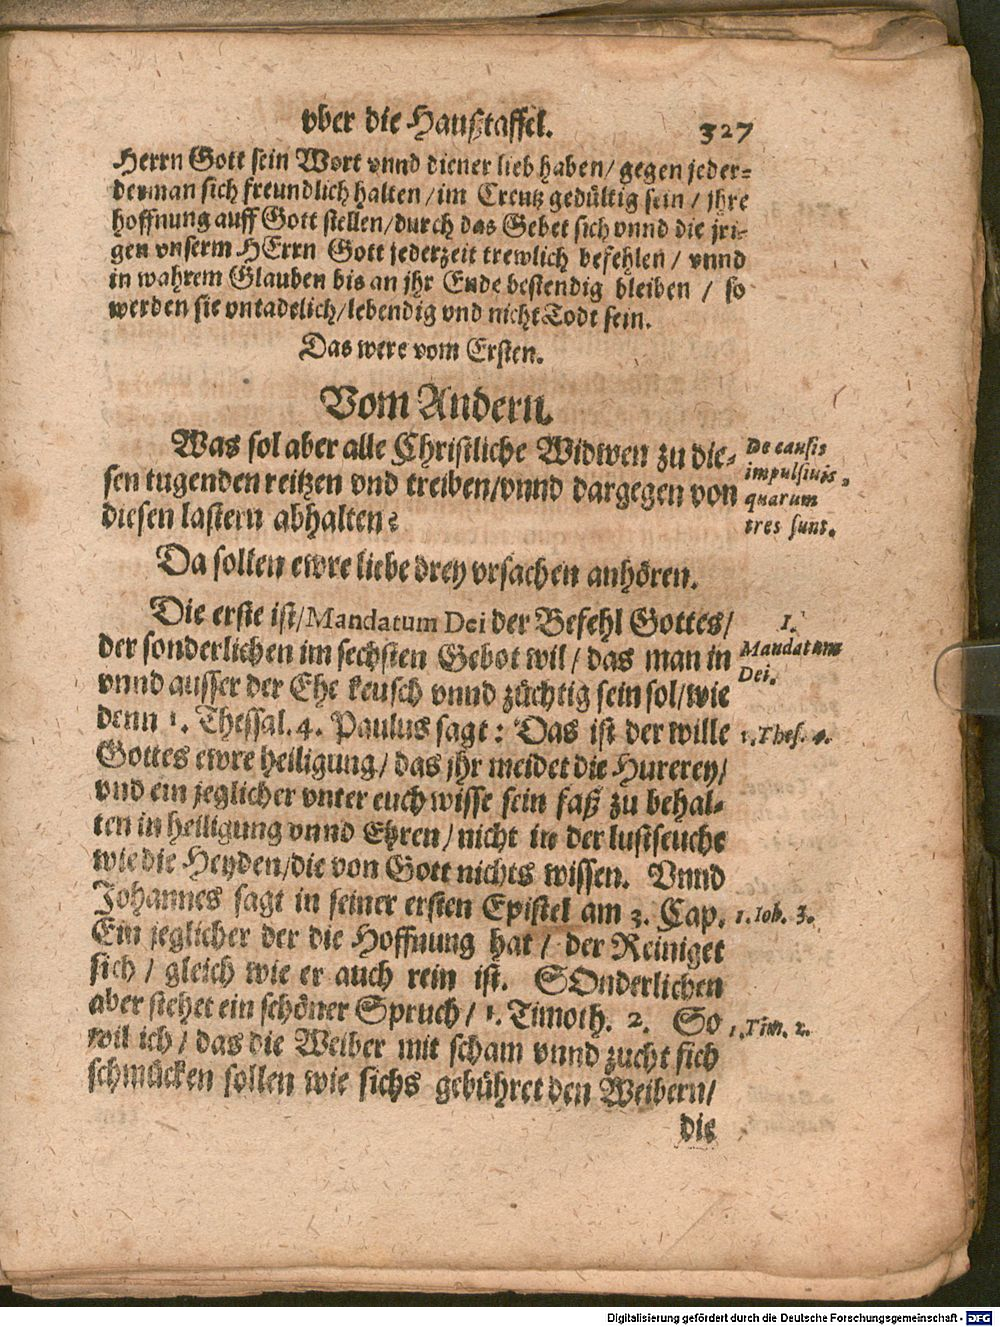 vber die Haußtaffel. 327
Herrn Gott sein Wort vnnd diener lieb haben/ gegen jeder-
derman sich freundlich halten/im Creutz gedültig sein / jhre
hoffnung auff Gott stellen/durch das Gebet sich vnnd die jri-
gen vnserm HErrn Gott jederzeit trewlich befehlen / vnnd
in wahrem Glauben bis an jhr Ende bestendig bleiben / so
werden sie vntadelich/lebendig vnd nicht Todt sein.
Das were vom Ersten.
Vom Andern.
Was sol aber alle Christliche Widwen zu die-
sen tugenden reitzen vnd treiben/vnnd dargegen von
diesen lastern abhalten?
De causis
impulsiuis,
quarum
tres sunt.
Da sollen ewre liebe drey vrsachen anhören.
Die erste ist/Mandatum Dei der Befehl Gottes/
der sonderlichen im sechsten Gebot wil/ das man in
vnnd ausser der Ehe keusch vnnd züchtig sein sol/wie
denn 1. Thessal. 4. Paulus sagt: Das ist der wille
Gottes ewre heiligung/ das jhr meidet die Hurerey/
vnd ein jeglicher vnter euch wisse sein faß zu behal-
ten in heiligung vnnd Ehren/nicht in der lustseuche
wie die Heyden/die von Gott nichts wissen. Vnnd
Johannes sagt in seiner ersten Epistel am 3. Cap.
Ein jeglicher der die Hoffnung hat/ der Reiniget
sich / gleich wie er auch rein ist. SOnderlichen
aber stehet ein schöner Spruch/ 1. Timoth. 2. So
wil ich/ das die Weiber mit scham vnnd zucht sich
schmücken sollen wie sichs gebühret den Weibern/
die
I.
Mandatum
Dei.
1.Thes. 4.
1.Ioh. 3.
1.Tim. 2.
Digitalisierung gefördert durch die Deutsche Forschungsgemeinschaft - DFG